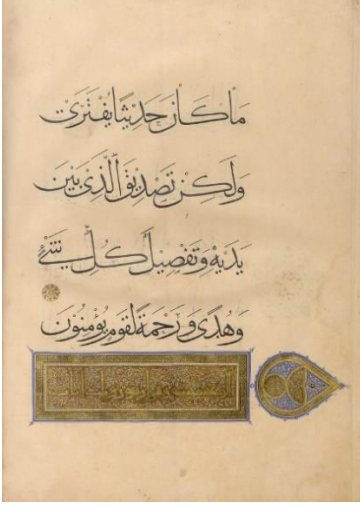 مَا كَانَ حَدِيثًا يُفْتَرَىٰ
وَلَٰكِنْ تَصْدِيقَ ٱلَّذِى بَيْنَ
يَدَيْهِ وَتَفْصِيلَ كُلِّ شَىْءٍ
وَهُدًى وَرَحْمَةً لِّقَوْمٍ يُؤْمِنُونَ